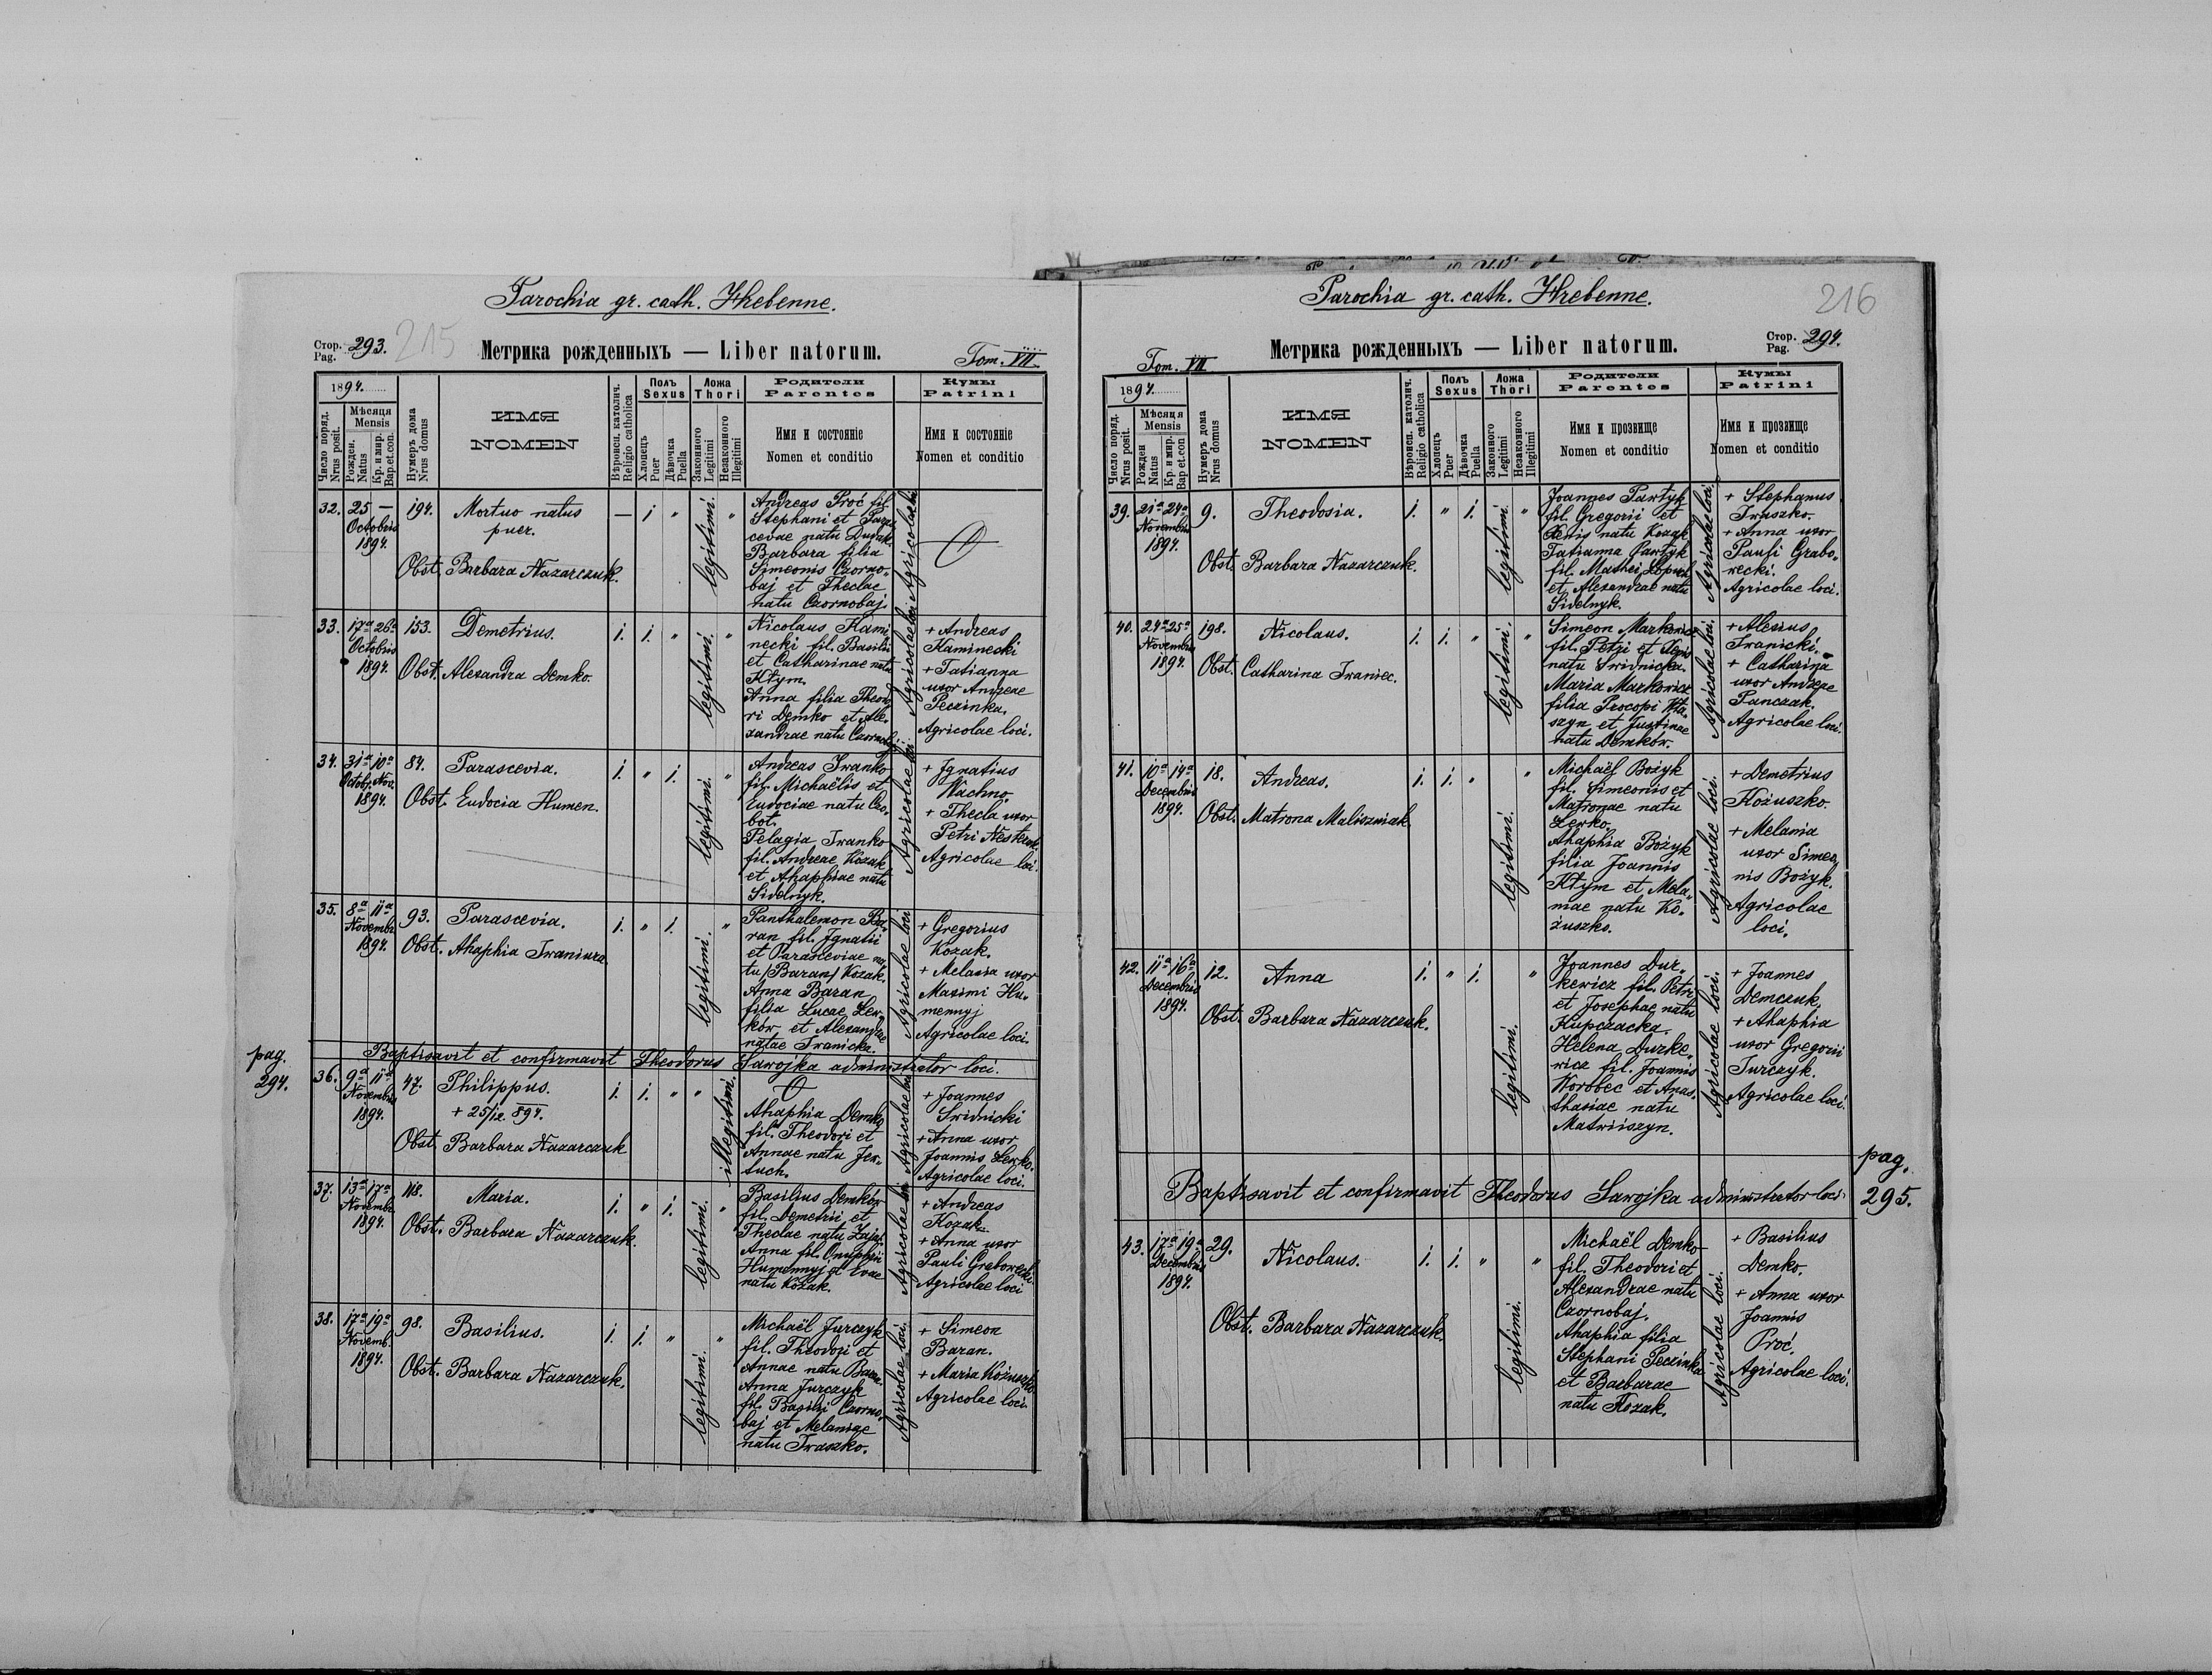 Parochia gr. cath. Hrebenne.
Стор. Pag. 293.
215
Метрика рожденныхъ — Liber natorum.
Tom. VII.
1894.
Число поряд. Nrus posit.
Мѣсяця Mensis
Рожден. Natus
Кр. и мир. Bap.et.con.
Нумеръ дома Nrus domus
ИМЯ
NOMEN
Вѣроисп. католич. Religio catholica
Полъ Sexus
Хлопецъ Puer
Дѣвочка Puella
Ложа Thori
Законного Legitimi
Незаконного Illegitimi
Родители
Parentes
Имя и состояніе
Nomen et conditio
Кумы
Patrini
Имя и состояніе
Nomen et conditio
32. 25 — Octobris 1894. 194.
Mortuo natus
puer.
Obst. Barbara Nazarczuk.
— i „ legitimi. „
Andreas Proć fil.
Stephani et Paras-
cevae natu Dudak.
Barbara filia
Simeonis Czorno-
baj et Theclae
natu Czornobaj.
Agricolae loci
33. 17a 26a Octobris 1894. 153.
Demetrius.
Obst. Alexandra Demko.
i. i. „ legitimi. „
Nicolaus Kami-
necki fil. Basilii
et Catharinae natu
Kłym.
Anna filia Theodo-
ri Demko et Ale-
xandrae natu Czornobaj.
Agricolae loci
+ Andreas
Kaminecki
+ Tatianna
uxor Andreae
Peczinka.
Agricolae loci.
34. 31a 10a Octob. Nov. 1894. 84.
Parascevia.
Obst. Eudocia Humen.
i. „ i. legitimi. „
Andreas Iwanko
fil. Michaëlis et
Eudociae natu Czo-
bot.
Pelagia Iwanko
fil. Andreae Kozak
et Ahaphiae natu
Sidelnyk.
Agricolae loci
+ Ignatius
Wachno.
+ Thecla uxor
Petri Nesteruk
Agricolae loci.
35. 8a 11a Novemb. 1894. 93.
Parascevia.
Obst. Ahaphia Iwaniura.
i. „ i. legitimi. „
Panthalemon Ba-
ran fil. Ignatii
et Parasceviae na-
tu /Baran/ Kozak.
Anna Baran
filia Lucae Lew-
ków et Alexandrae
natae Iwanicka.
Agricolae loci
+ Gregorius
Kozak.
+ Melania uxor
Maximi Hu-
mennyj
Agricolae loci.
Baptisavit et confirmavit Theodorus Sawojka administrator loci.
pag.
294.
36. 9a 11a Novembris 1894. 47.
Philippus.
+ 25/12. 894.
Obst. Barbara Nazarczuk
i. i. „ „ illegitimi.
Ahaphia Demko
fil. Theodori et
Annae natu Jer-
tuch.
Agricolae loci
+ Joannes
Swidnicki
+ Anna uxor
Joannis Lewko.
Agricolae loci.
37. 13a 17a Novemb. 1894. 118.
Maria.
Obst. Barbara Nazarczuk.
i. „ i. legitimi. „
Basilius Demków
fil. Demetrii et
Theclae natu Zając.
Anna fil. Onuphrii
Humennyj et Evae
natu Kozak.
Agricolae loci
+ Andreas
Kozak.
+ Anna uxor
Pauli Grabowecki
Agricolae loci
38. 17a 19a Novemb. 1894. 98.
Basilius.
Obst. Barbara Nazarczuk.
i. i. „ legitimi. „
Michaël Jurczyk
fil. Theodori et
Annae natu Baran.
Anna Jurczyk
fil. Basilii Czorno-
baj et Melaniae
natu Iwaszko.
Agricolae loci.
+ Simeon
Baran.
+ Maria Kożuszko
Agricolae loci.
Parochia gr. cath. Hrebenne.
216
Стор. Pag. 294.
Метрика рожденныхъ — Liber natorum.
Tom. VII
1894.
Число поряд. Nrus posit.
Мѣсяця Mensis
Рожден Natus
Кр. и мир. Bap et.con
Нумеръ дома Nrus domus
ИМЯ
NOMEN
Вѣроисп. католич. Religio catholica
Полъ Sexus
Хлопецъ Puer
Дѣвочка Puella
Ложа Thori
Законного Legitimi
Незаконного Illegitimi
Родители
Parentes
Имя и прозвище
Nomen et conditio
Кумы
Patrini
Имя и прозвище
Nomen et conditio
39. 21a 24a Novembris 1894. 9.
Theodosia.
Obst. Barbara Nazarczuk.
i. „ i. legitimi. „
Joannes Pawłyk
fil. Gregorii et
Xenis natu Kozak
Tatianna Pawłyk
fil. Mathei Łopuch
et Alexandrae natu
Sidelnyk.
Agricolae loci.
+ Stephanus
Iwaszko.
+ Anna uxor
Pauli Grabo-
wecki.
Agricolae loci.
40. 24a 25a Novembris 1894. 198.
Nicolaus.
Obst. Catharina Iwaniec.
i. i. „ legitimi. „
Simeon Markowicz
fil. Petri et Xenis
natu Swidnicka.
Maria Markowicz
filia Procopi
szyn et Justinae
natu Demków.
Agricolae loci.
+ Alexius
Iwanicki.
+ Catharina
uxor Andreae
Panczak.
Agricolae loci.
41. 10a 14a Decembris 1894. 18.
Andreas.
Obst. Matrona Maliszniak.
i. i. „ legitimi. „
Michaël Bożyk
fil. Simeonis et
Matronae natu
Lewko.
Ahaphia Bożyk
filia Joannis
Kłym et Mela-
niae natu Ko-
żuszko.
Agricolae loci.
+ Demetrius
Kożuszko.
+ Melania
uxor Simeo-
nis Bożyk.
Agricolae
loci.
42. 11a 16a Decembris 1894. 12.
Anna
Obst. Barbara Nazarczuk.
i. „ i. legitimi. „
Joannes Dur-
kewicz fil. Petri
et Josephae natu
Kupczacka.
Helena Durke-
wicz fil. Joannis
Worobec et Anas-
thasiae natu
Matwiiszyn.
Agricolae loci.
+ Joannes
Demczuk.
+ Ahaphia
uxor Gregorii
Jurczyk.
Agricolae loci.
Baptisavit et confirmavit Theodorus Sawojka administrator loci.
pag.
295.
43. 17a 19a Decembris 1894. 29.
Nicolaus.
Obst. Barbara Nazarczuk.
i. i. „ legitimi. „
Michaël Demko
fil. Theodori et
Alexandrae natu
Czornobaj.
Ahaphia filia
Stephani Peczinka
et Barbarae
natu Kozak.
Agricolae loci.
+ Basilius
Demko.
+ Anna uxor
Joannis
Proć.
Agricolae loci.